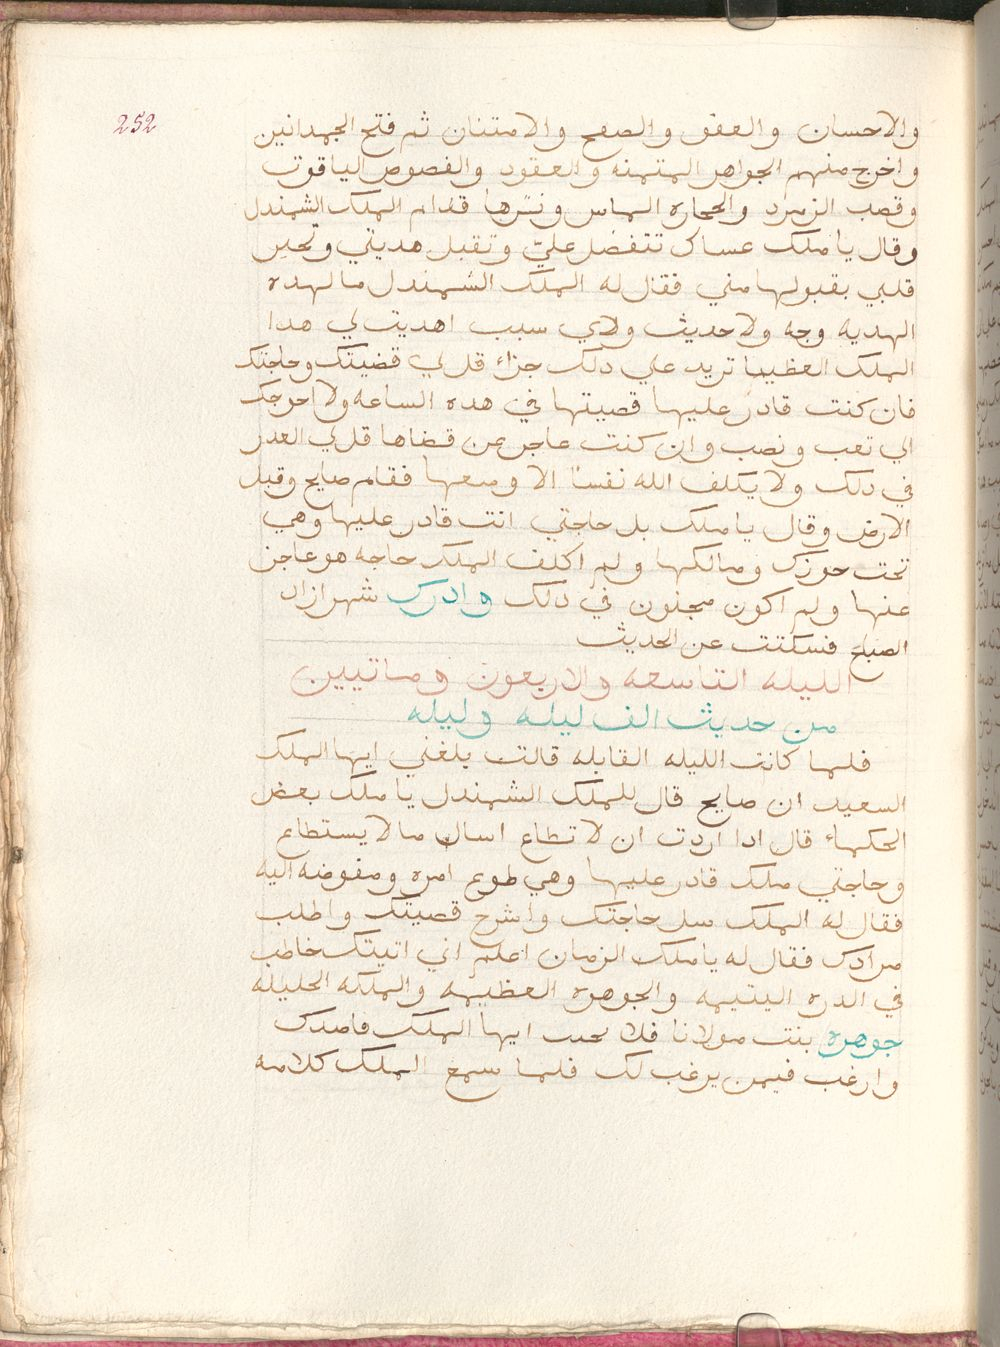 252
والاحسان والعفو والصفح والامتنان ثم فتح الجمدانين
واخرج منهم الجواهر المتمنه والعقود والفصوص الياقوت
وقصب الزمرد والحجاره الماس ونثرها قدام الملك الشمندل
وقال يا ملك عساك تتفضل عليّ وتقبل هديتي وتجبر
قلبي بقبولها مني فقال له الملك الشمندل ما لهده
الهديه وجه ولا حديث ولاي سبب اهديت لي هدا
الملك العظيم تريد علي دلك جزاء قل لي قضيتك وحاجتك
فان كنت قادر عليها قضيتها في هده الساعه ولا احوجك
الي تعب ونصب وان كنت عاجز عن قضاها قل لي العدر
في دلك ولا يكلف الله نفسًا الا وسعها فقام صايح وقبل
الارض وقال يا ملك بل حاجتي انت قادر عليها وهي
تحت حوزك ومالكها ولم اكلف الملك حاجه هو عاجز
عنها ولم اكون مجنون في دلك وادرك شهرازاد
الصباح فسكتت عن الحديث
الليله التاسعه والاربعون وماتيين
من حديث الف ليله وليله
فلما كانت الليله القابله قالت بلغني ايها الملك
السعيد ان صايح قال للملك الشمندل يا ملك بعض
الحكماء قال ادا اردت ان لا تطاع اسال ما لا يستطاع
وحاجتي ملك قادر عليها وهي طوع امره ومفوضه اليه
فقال له الملك سل حاجتك واشرح قصيتك واطلب
مرادك فقال له يا ملك الزمان اعلم اني اتيتك خاطب
في الدره اليتيمه والجوهره العظيمه والملكه الجليله
جوهره بنت مولانا فلا تحيب ايها الملك قاصدك
وارغب فيمن يرغب لك فلما سمع الملك كلامه